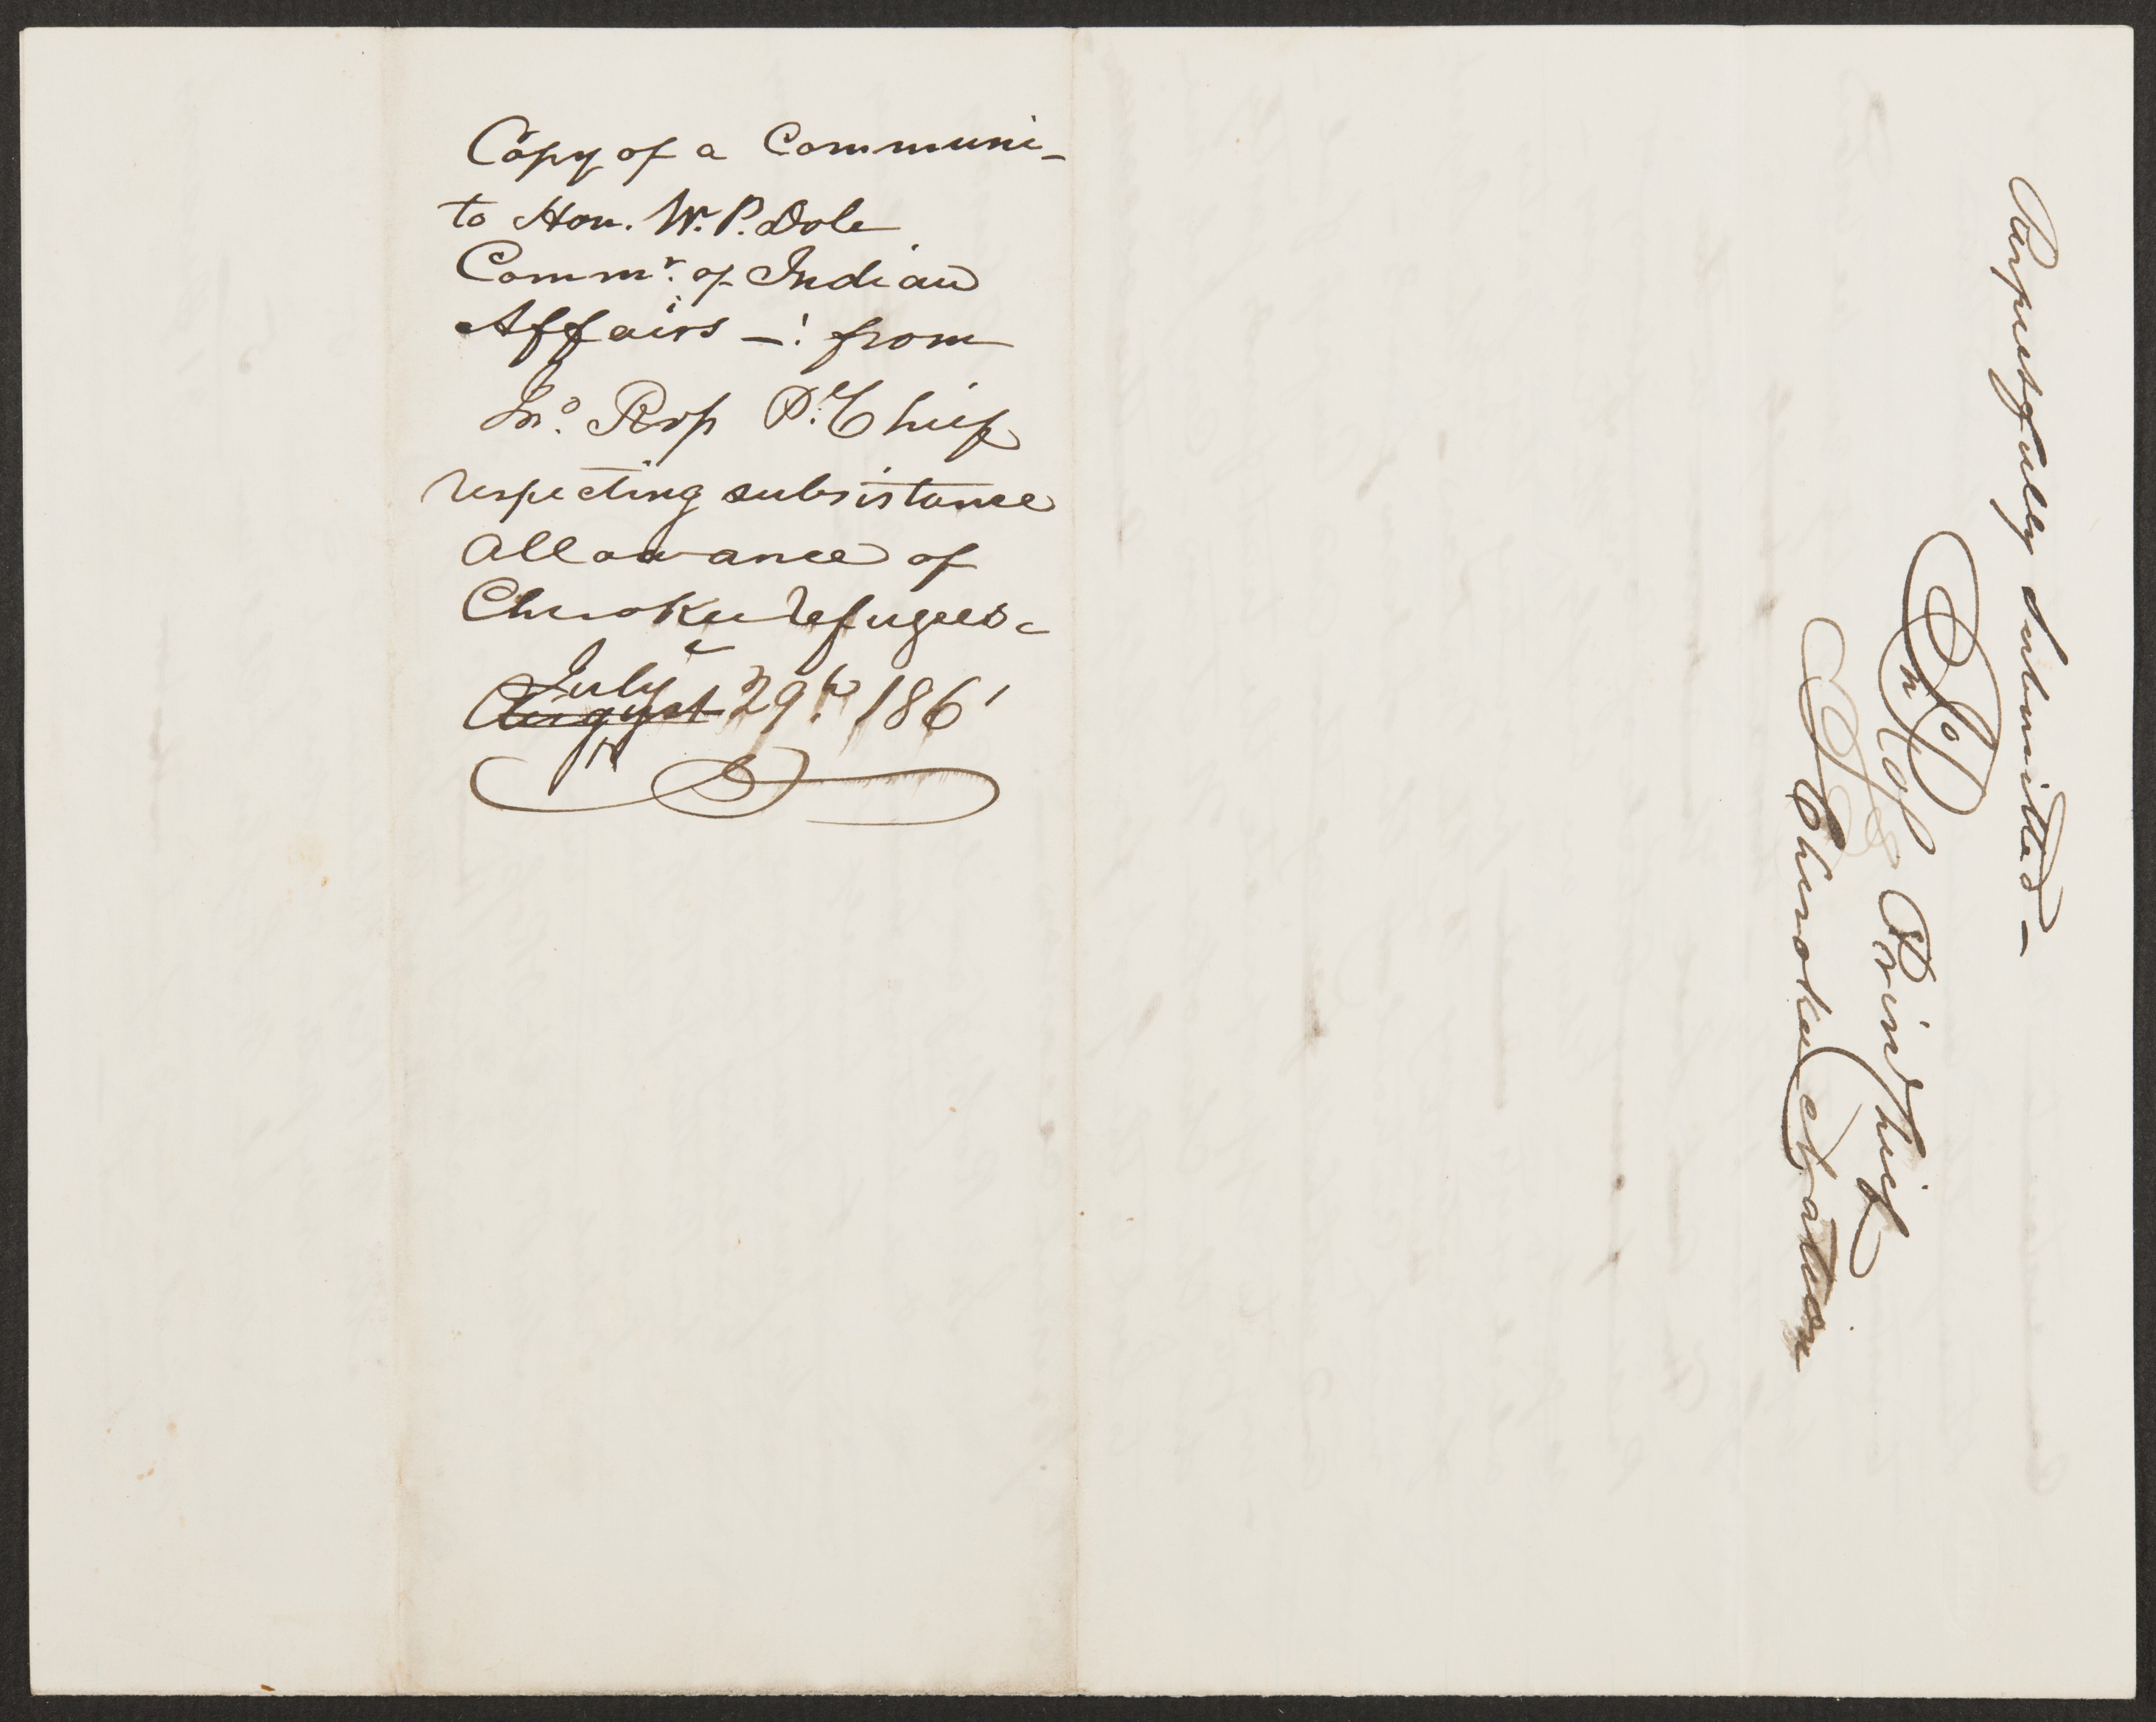 Copy of a Communi-
to Hon. W. P. Dole
Commr. of Indian
Affairs —: from
Jno. Ross P. Chief
respecting subsistance
allowance of
Cherokee refugees.
July
August 29th. 186
Respectfully submitted —
Jno Ross Prin Chief
Cherokee Nation